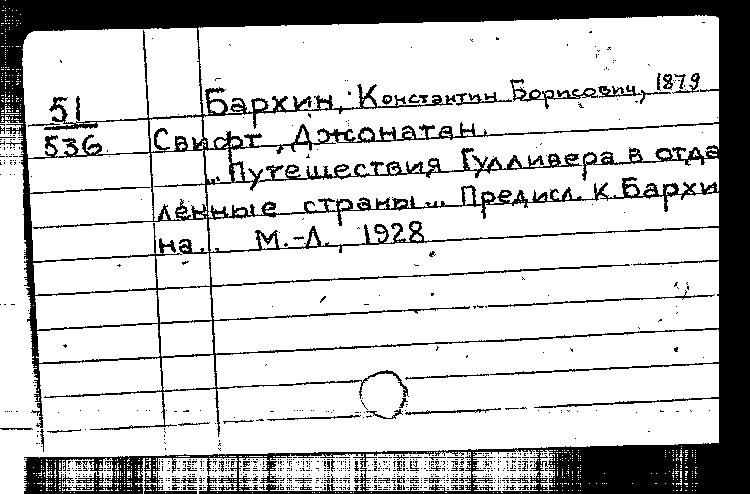 51 Бархин, Константин Борисович, 1879
536 Свифт, Джонатан.
... Путешествия Гулливера в отда
лённые страны... Предисл. К. Бархи
на... М.-Л., 1928